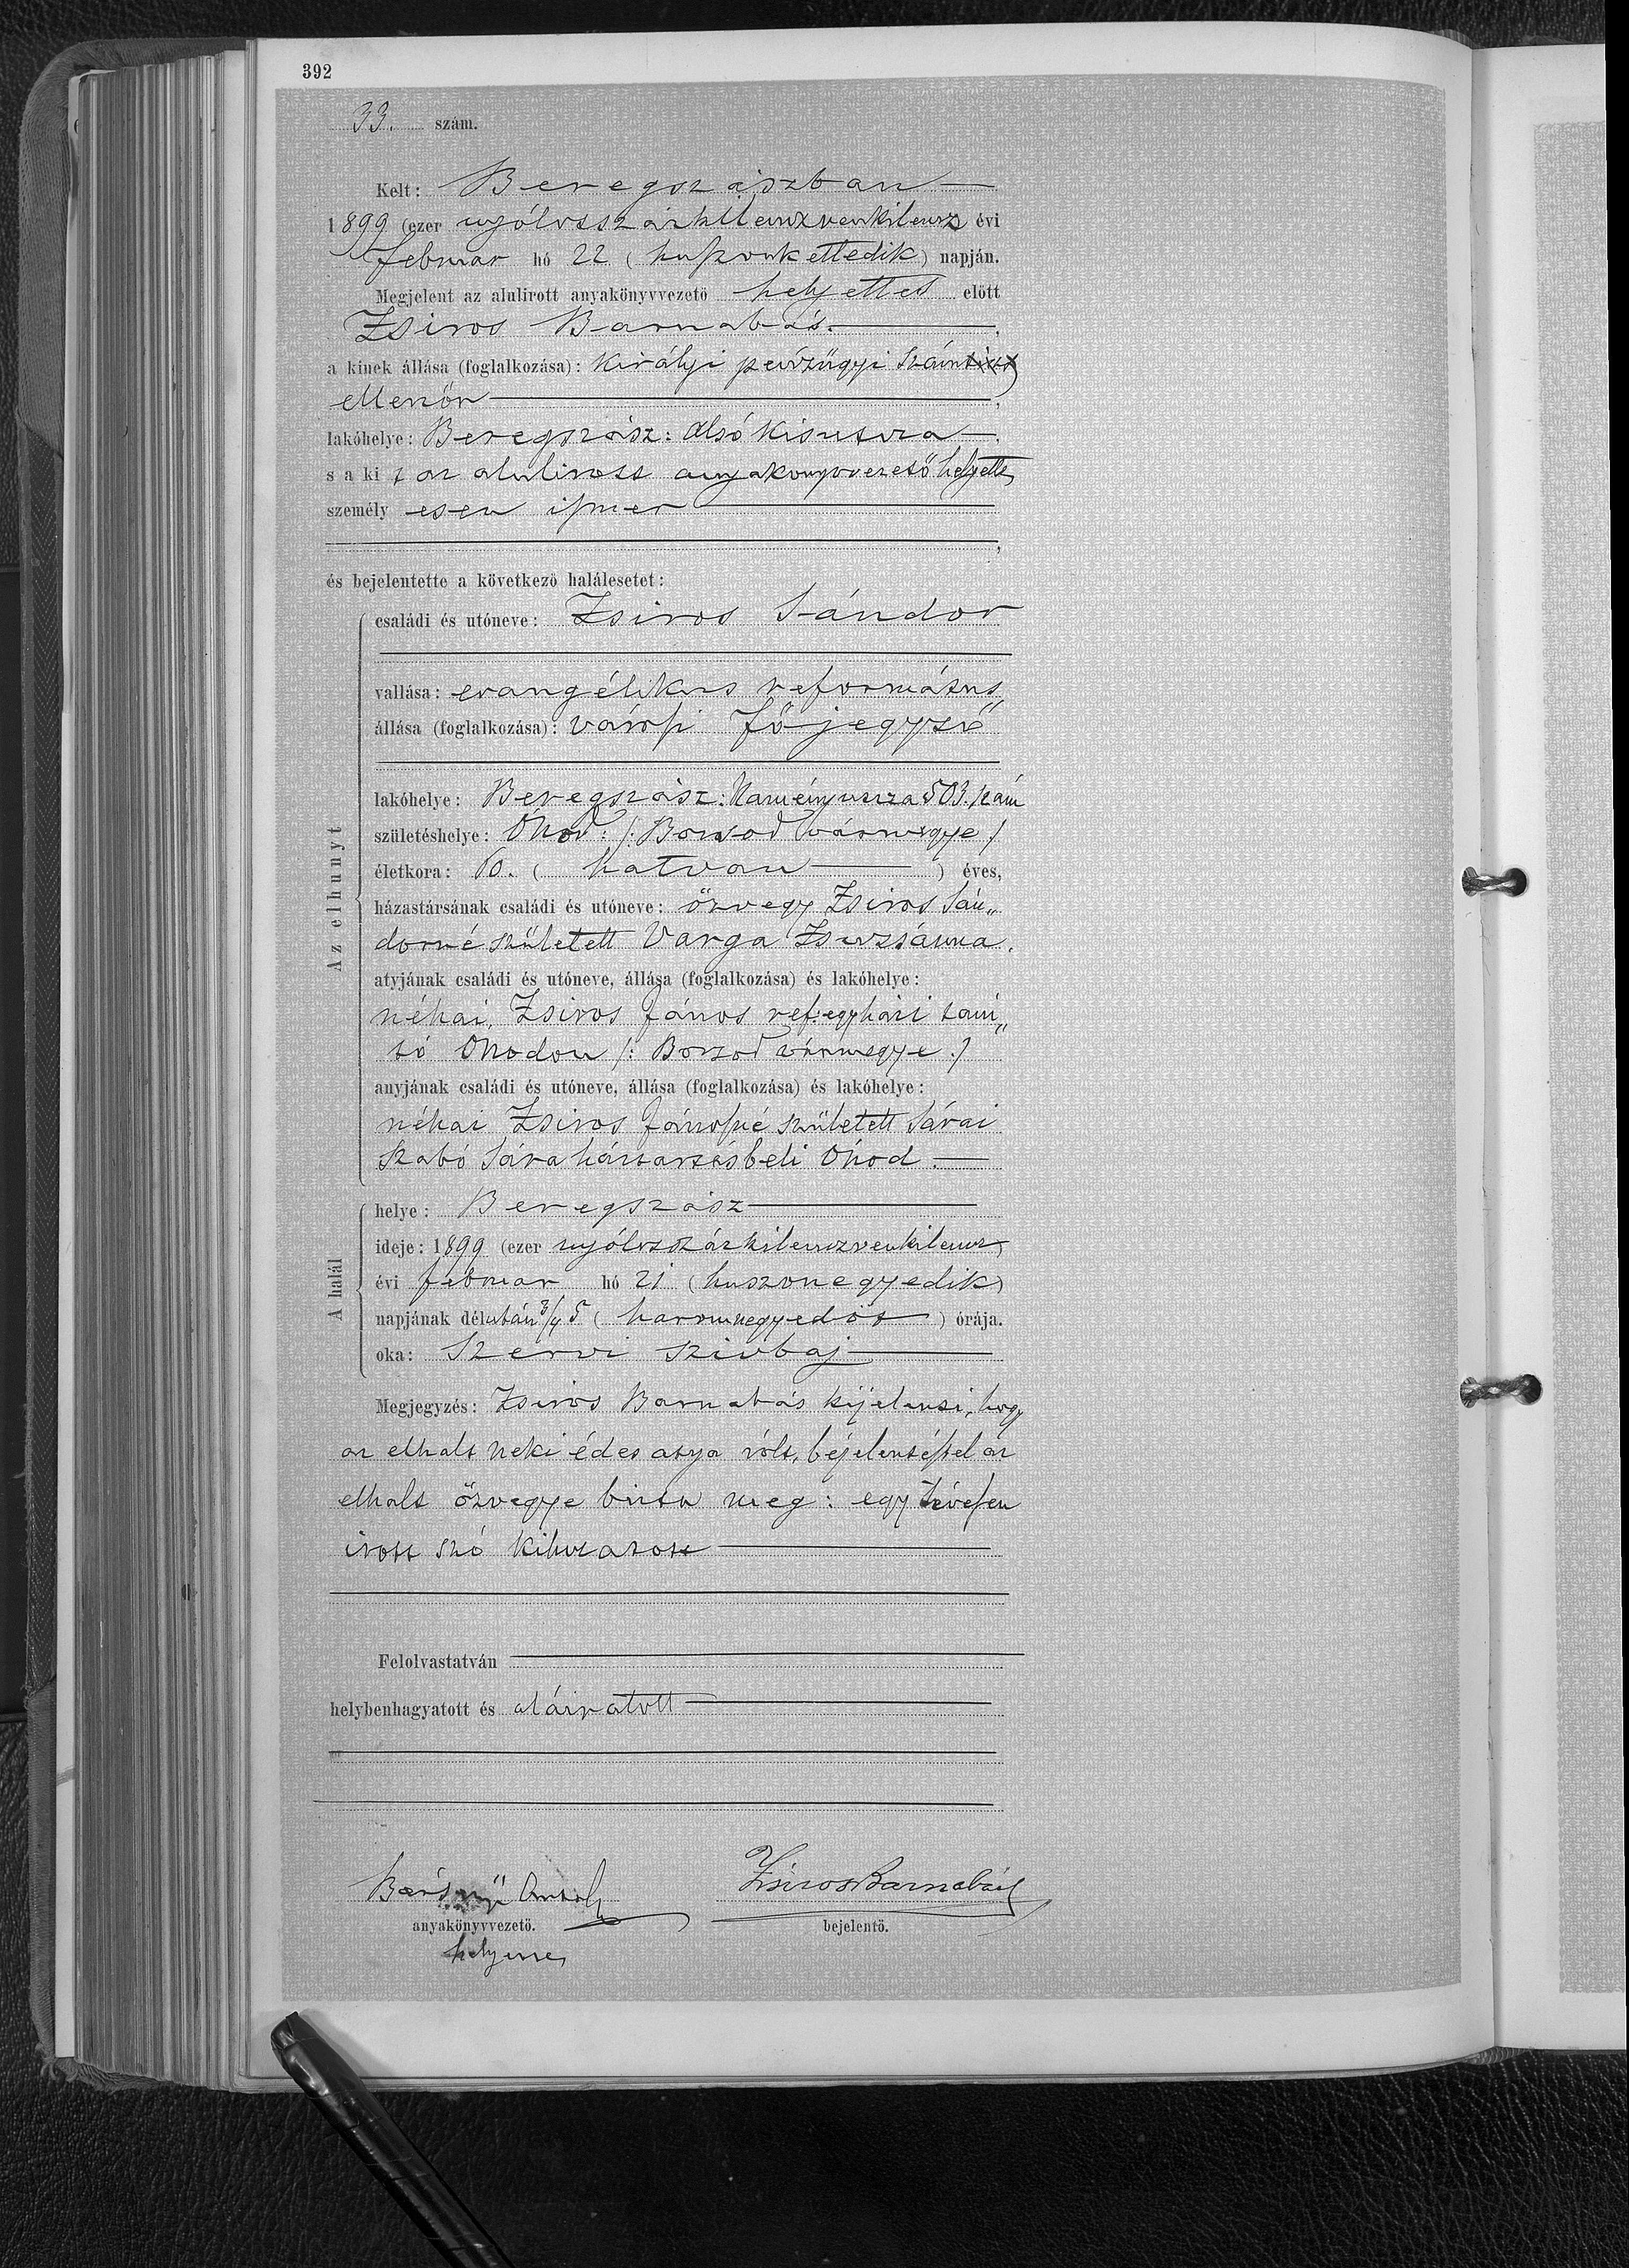 392
33. szám.
Kelt: Beregszászban
1899 (ezer nyólcsszázkilenczvenkilencz) évi
februar hó 22 (huszonkettedik) napján.
Megjelent az alulirott anyakönyvvezető helyettes előtt
Zsiros Barnabás,
a kinek állása (foglalkozása): királyi pénzügyi szám
ellenőr,
lakóhelye: Beregszász: alsó kisutcza,
s a kit az alulirott anyakönyvvezető helyettes
személyesen ismer
,
és bejelentette a következő halálesetet:
Az elhunyt
családi és utóneve: Zsiros Sándor
vallása: evangélikus református
állása (foglalkozása): városi főjegyző
lakóhelye: Beregszász: Naményutcza 503. szám
születéshelye: Ónod: /: Borsod vármegye /
életkora: 60. (hatvan) éves,
házastársának családi és utóneve: özvegy Zsiros Sán„
dorné született Varga Zsuzsánna.
atyjának családi és utóneve, állása (foglalkozása) és lakóhelye:
néhai, Zsiros János ref. egyházi taní„
tó Ónodon /: Borsod vármegye :/
anyjának családi és utóneve, állása (foglalkozása) és lakóhelye:
néhai Zsiros Jánosné született Sárai
Szabó Sára háztartásbeli Ónod.
A halál
helye: Beregszász
ideje: 1899 (ezer nyólcsszázkilenczvenkilencz)
évi februar hó 21 (huszonegyedik)
napjának délután 3/4 5 (háromnegyedöt) órája.
oka: Szervi szivbaj
Megjegyzés: Zsiros Barnabás kijelenti, hogy
az elhalt neki édes atya vólt, bejelentéssel az
elhalt özvegye bizta meg: egy tévesen
irott szó kihuzatott
Felolvastatván
helybenhagyatott és aláiratott
Antal Zsiros Barnabás
anyakönyvvezető. bejelentő.
helyettes